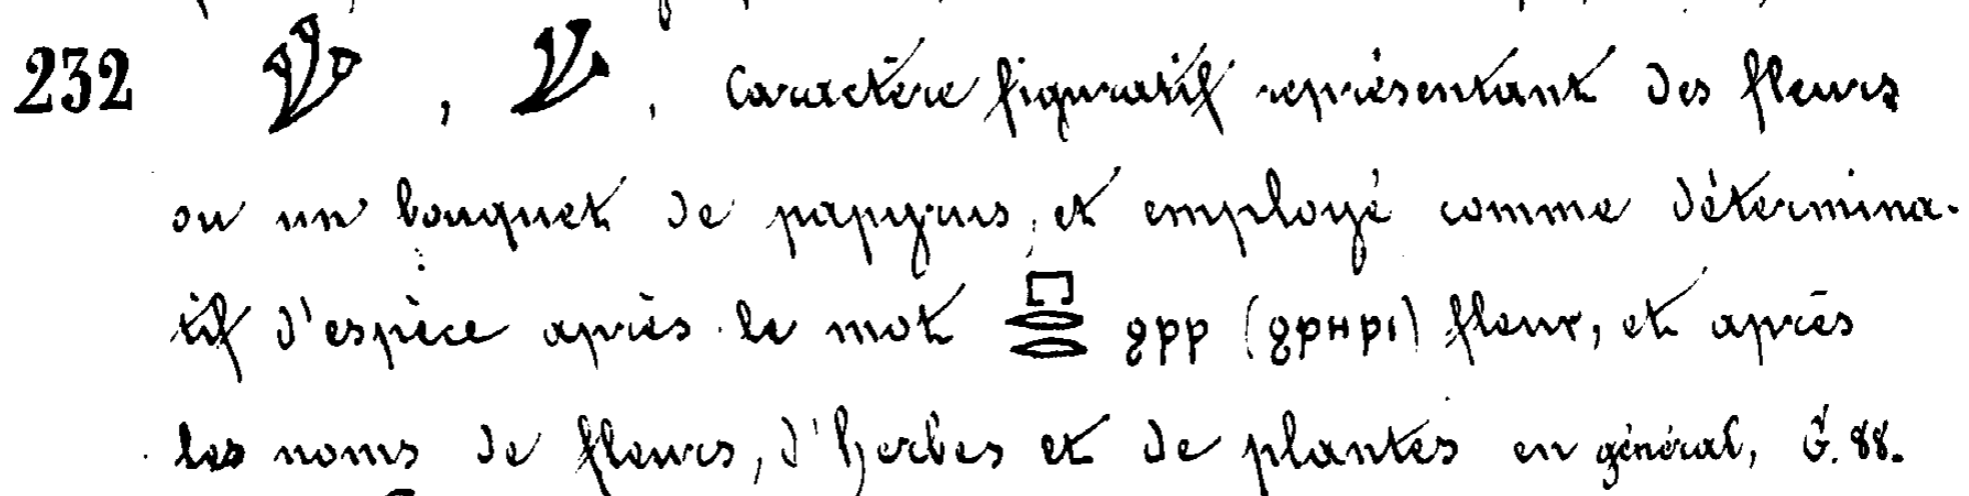 232 , , Caractère figuratif représentant des fleurs
ou un bouquet de papyrus, et employé comme détermina-
tif d'espèce après le mot 𓉔𓂋𓂋 ϩⲣⲣ (ϩⲣⲏⲣⲓ) fleur, et après
les noms de fleurs, d'herbes et de plantes en général, G. 88.